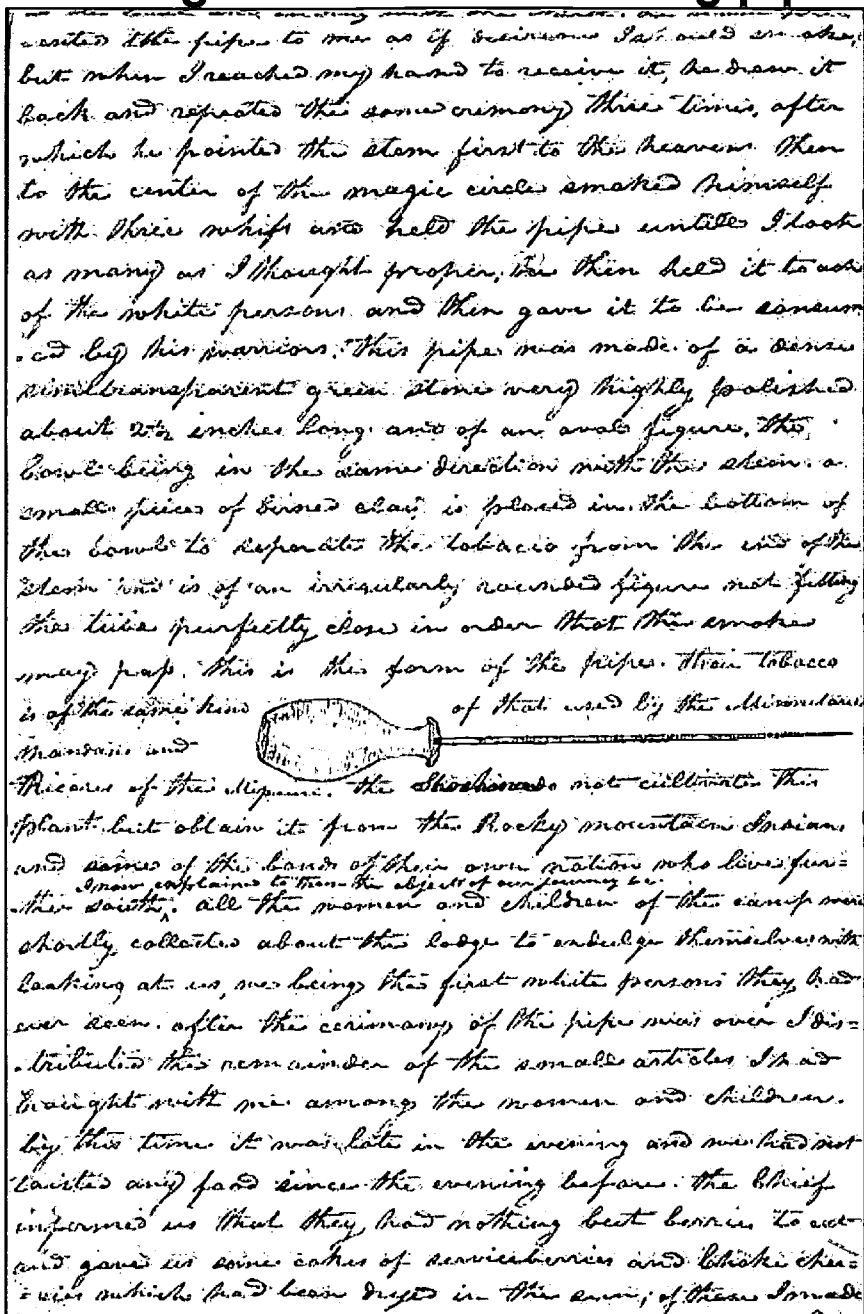 sented the pipe to me as if desirous I should smoke,
but when I reached my hand to receive it, he drew it
back and repeated the same cremony three times, after
which he pointed the stem first to the heavens then
to the center of the magic circle smoked himself
with three whifs and held the pipe untill I took
as many as I thought proper; he then held it to each
of the white persons and then gave it to be consum-
-ed by his warriors. This pipe was made of a dense
simitransparent green stone very highly polished
about 2½ inches long and of an oval figure, the
bowl being in the same direction with the stem. a
small piece of birned clay is placed in the bottom of
the bowl to seperate the tobacco from the end of the
stem and is of an irregularly rounded figure not fitting
the tube purfectly close in order that the smoke
may pass. this is the form of the pipe. their tobacco
is of the same kind of that used by the Minnetares
Mandans and
Ricares of the Missouri. the Shoshonees do not cultivate this
plant, but obtain it from the Rocky mountain Indians
and some of the bands of their own nation who live fur-
I now explained to them the objects of our journey &c.
-ther south. all the women and children of the camp were
shortly collected about the lodge to endulge themselves with
looking at us, we being the first white persons they had
ever seen. after the cerimony of the pipe was over I dis-
-tributed the remainder of the small articles I had
braught with me among the women and children.
by this time it was late in the evening and we had not
taisted any food since the evening before. the Chief
informed us that they had nothing but berries to eat
and gave us some cakes of serviceberries and Choke cher-
-ries which had been dryed in the sun; of these I made